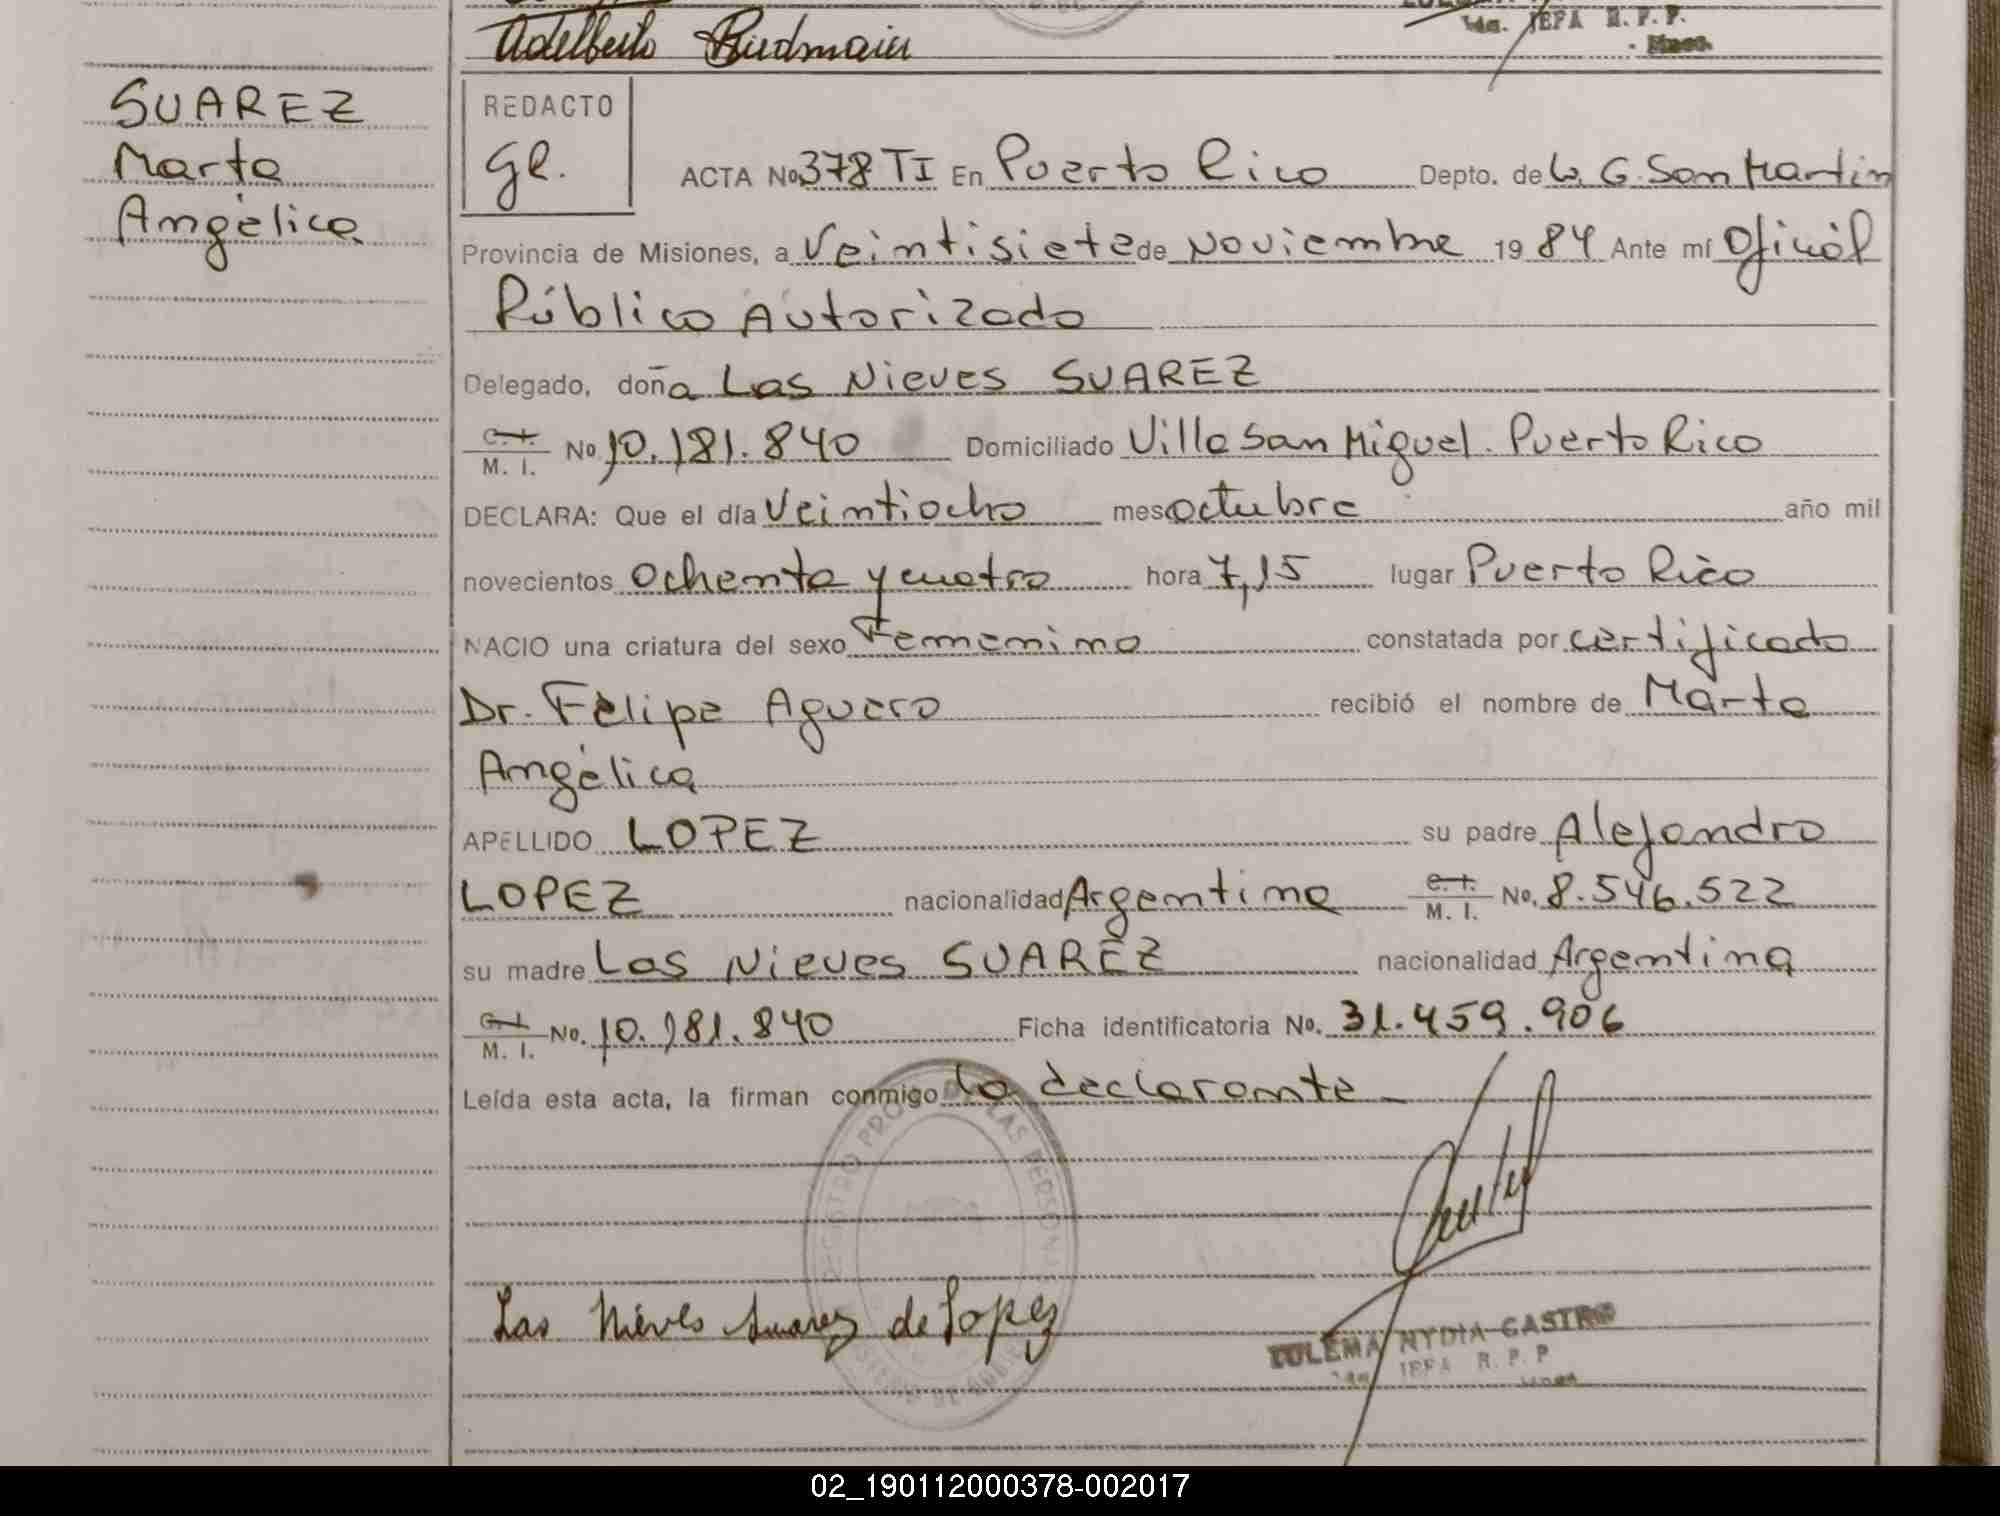 Adelberto
IEFA R. P. P.
SUAREZ
Marta
Angélica
REDACTO
ge.
ACTA No 378 TI En Puerto Rico Depto. de L. G. San Martin
Provincia de Misiones, a Veintisiete de Noviembre 1984 Ante mí Oficial
Público Autorizado
Delegado, doña Las Nieves SUAREZ
C. I. M. I. No 10.181.840 Domiciliado Villa San Miguel. Puerto Rico
DECLARA: Que el día Veintiocho mes octubre año mil
novecientos ochenta y cuatro hora 7,15 lugar Puerto Rico
NACIO una criatura del sexo Femenino constatada por certificado
Dr. Felipe Aguero recibió el nombre de Marta
Angélica
APELLIDO LOPEZ su padre Alejandro
LOPEZ nacionalidad Argentina C. I. M. I. No. 8.546.522
su madre Las Nieves SUAREZ nacionalidad Argentina
C. I. M. I. No. 10.181.840 Ficha identificatoria No. 31.459.906
Leída esta acta, la firman conmigo la declarante
REGISTRO PRO DE LAS PERSONAS
Las Nieves Suarez de Lopez
ZULEMA NYDIA CASTRO
IEFA R. P. P
02_190112000378-002017